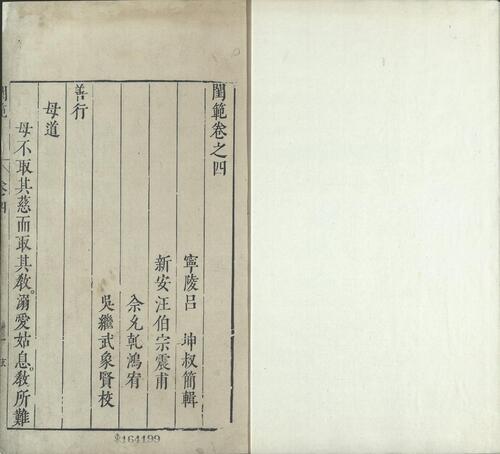 閨範卷之四
寧陵呂 坤叔簡輯
新安汪伯宗震甫
佘允乾鴻宥
吳繼武象賢校
善行
母道
母不取其慈而取其教。溺愛姑息。教所難
閨範
卷四
164199